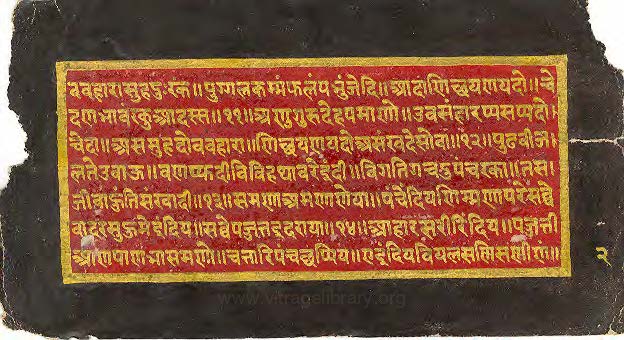 ववहारासुहदुःरकं॥पुग्गलकम्मंफलंपभुंजेदि॥आदाणिच्छयणयदो॥चे
दणभावंरकुआदस्स॥११॥अणुगुरुदेहपमाणो॥उवसंहारप्पसप्पदो
चेदा॥असमुहदोववहारा॥णिच्छयणयदोअसंरवदेसोवा॥१२॥पुढवीज
लतेउवाऊ॥वणप्फदीविविहथावरेइंदी॥विगतिगचदुपंचरका॥तस
जीवाहुंतिसंखादी॥१३॥समणाअमणाणेया॥पंचेंदियणिम्मणापरेसव्वे
बादरसुहुमेइंदिय॥सव्वेपज्जत्तइदराया॥१४॥आहारसरीरिंदिय॥पज्जत्ती
आणपाणभासमणो॥चत्तारिपंचछप्पिय॥एइंदियवियलसणिसणीणं॥
२
www.vitragelibrary.org